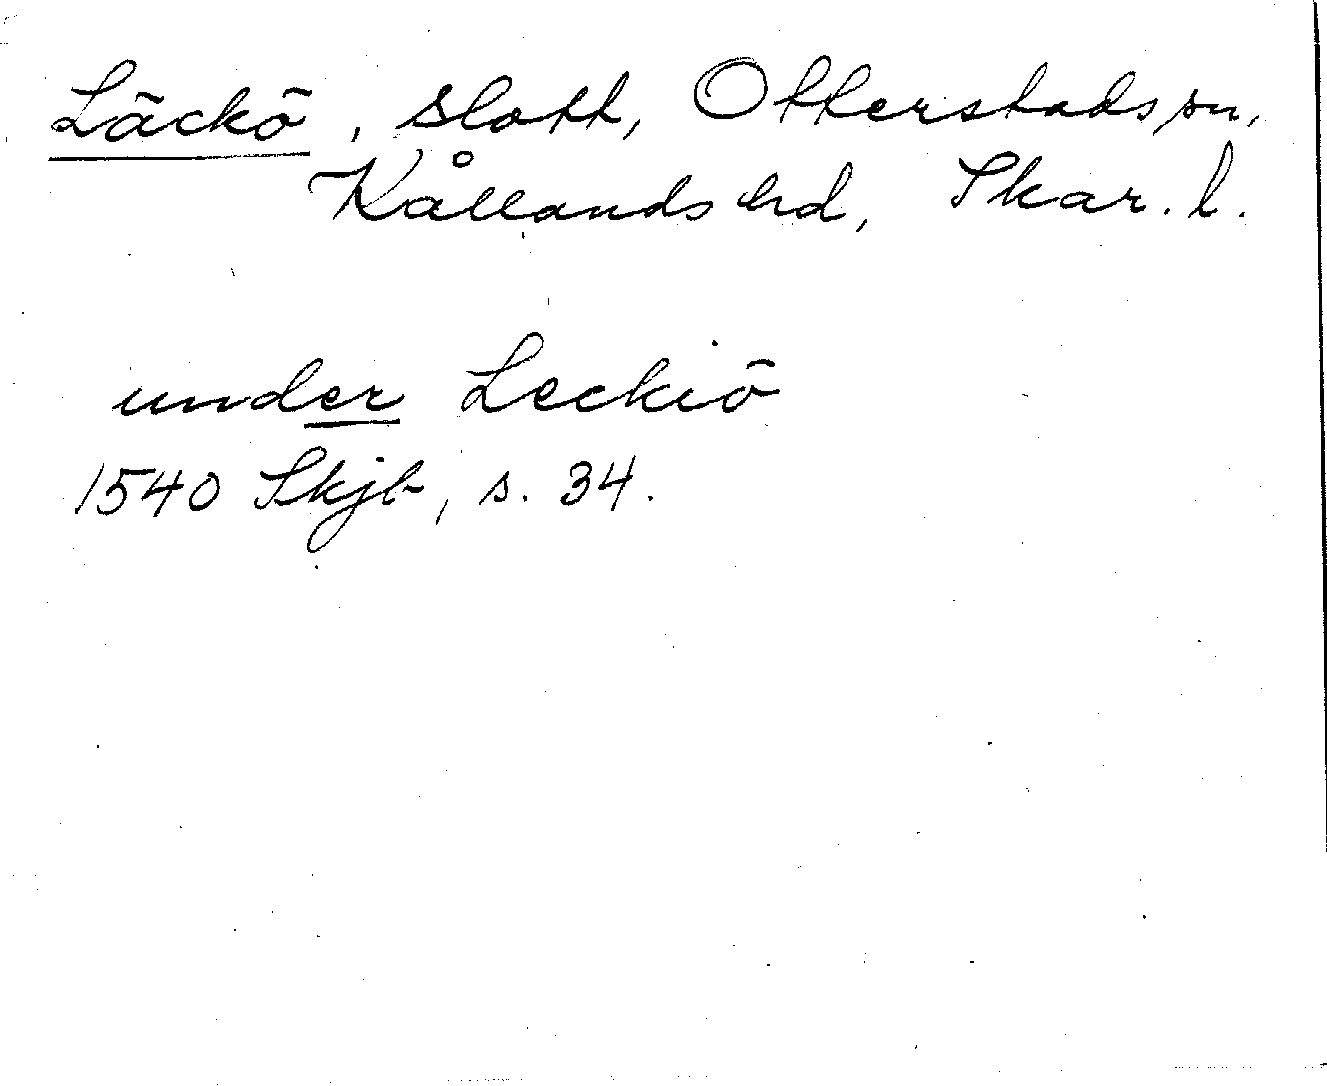 Läckö, slott, Otterstads sn,
Kållands hd, Skar. l.
under Leckiö
1540 Skjb, s. 34.